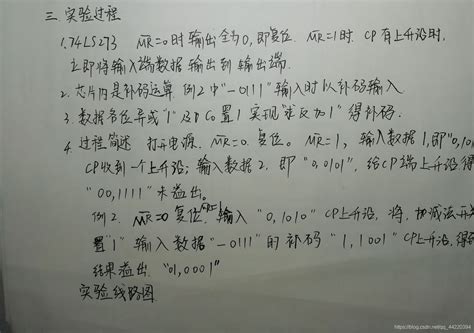 三. 实验过程
1. 74LS273 MR=0时输出全为0,即复位. MR=1时. CP有上升沿时,
立即将输入端数据输出到输出端.
2. 芯片内是补码运算. 例2中"-0111"输入时以补码输入.
3. 数据各位异或"1"及C0置1实现"求反加1"得补码.
4. 过程简述 打开电源. MR=0. 复位。MR=1, 输入数据1,即"0,10
CP收到一个上升沿; 输入数据2, 即"0,0101", 给CP端上升沿得
"00,1111"未溢出。
例2. MR=0复位, 输入"0,1010"CP上升沿, 将 加减法开
置"1"输入数据"-0111"的补码"1,1001"CP上升沿,得
结果溢出"01,0001"
实验线路图
https://blog.csdn.net/qq_44220394